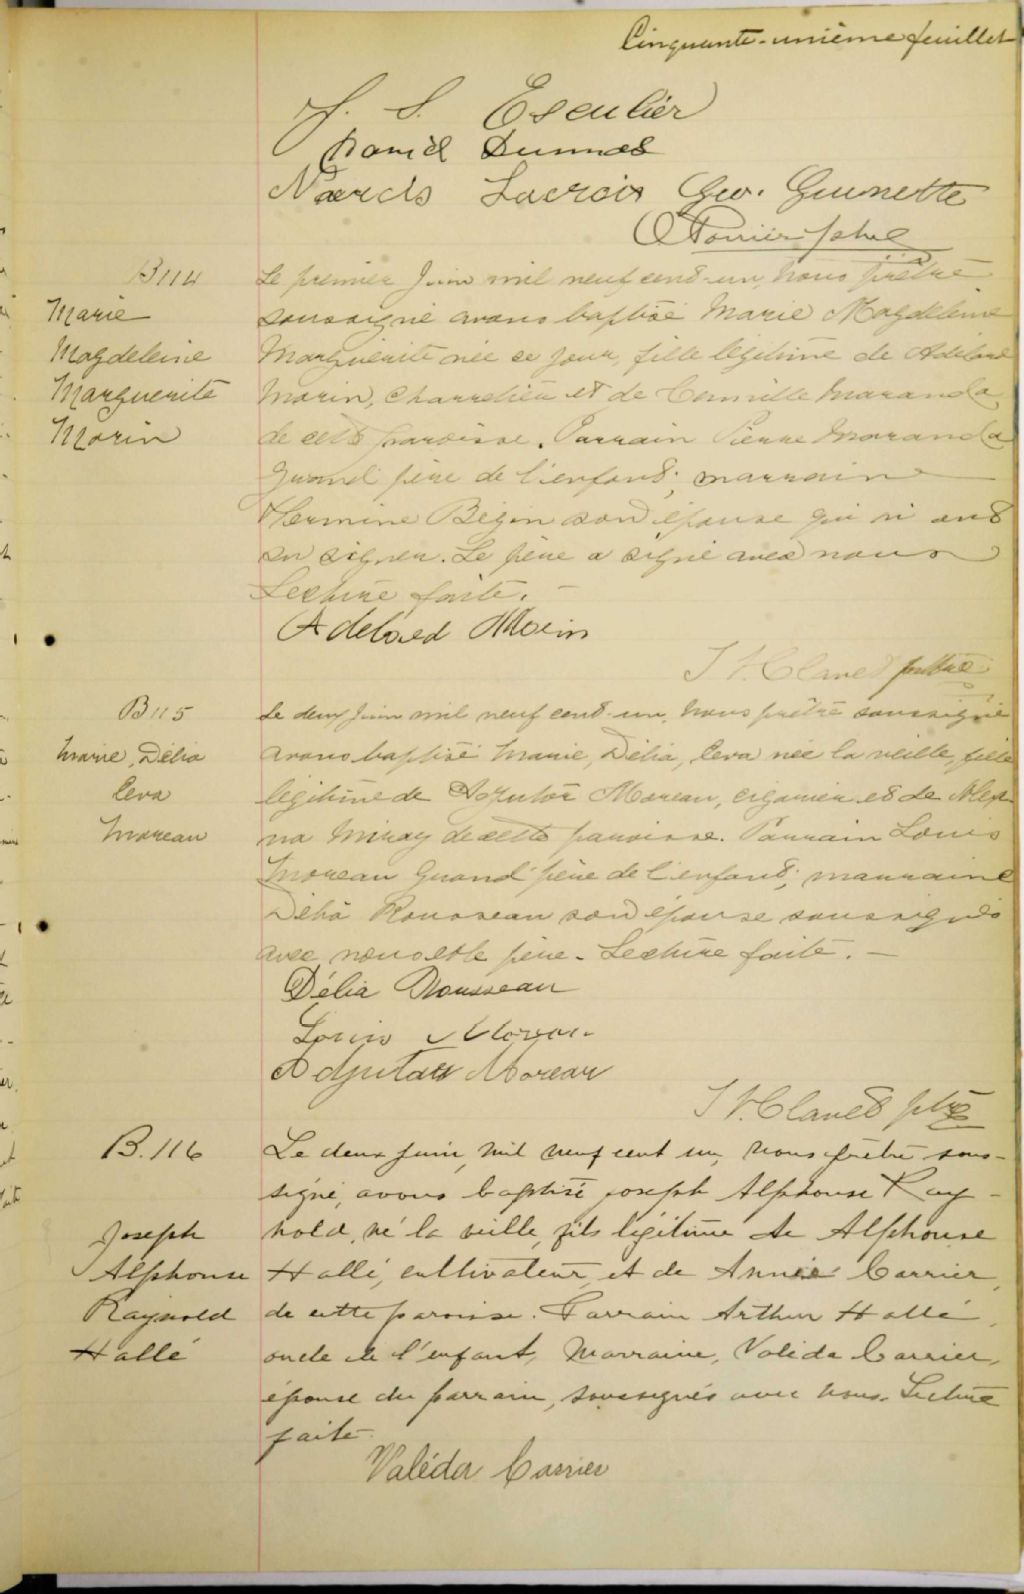 Cinquante-unième feuillet
J. S. Esculier
David Dumas
Narcis Lacroix Geo. Guenette
Poirier ptre
B114
Marie
Magdeleine
Marguerite
Morin
Le premier Juin mil neuf cent-un, nous prêtre
soussigné avons baptisé Marie Magdeleine
Marguerite née ce jour, fille légitime de Adélard
Morin, charretier et de Camille Maranda
de cette paroisse. Parrain Pierre Maranda
grand père de l'enfant; marraine
Hermine Bégin son épouse qui n'ont
su signer. Le père a signé avec nous
Lecture faite. —
Adelard Morin
J V. Clavet prêtre
B115
Marie, Délia
Ceva
Moreau
Le deux Juin mil neuf cent-un, nous prêtre soussigné
avons baptisé Marie, Délia, Ceva née la veille, fille
légitime de Adjutor Moreau, cigarier et de
na Miray de cette paroisse. Parrain Louis
Moreau grand'père de l'enfant; marraine
Délia Rousseau son épouse soussignés
avec nous et le père - Lecture faite. —
Délia Rousseau
Louis Moreau
Adjutor Moreau
J V. Clavet ptre
B. 116
Joseph
Alphonse
Raynold
Hallé
Le deux juin, mil neuf cent un, nous prêtre sous-
signé, avons baptisé joseph Alphonse Ray-
nold, né la veille, fils légitime de Alphonse
Hallé, cultivateur, et de Annie Carrier,
de cette paroisse. Parrain Arthur Hallé,
oncle de l'enfant, Marraine, Valéda Carrier,
épouse du parrain, soussignés avec nous. Lecture
faite.
Valéda Carrier